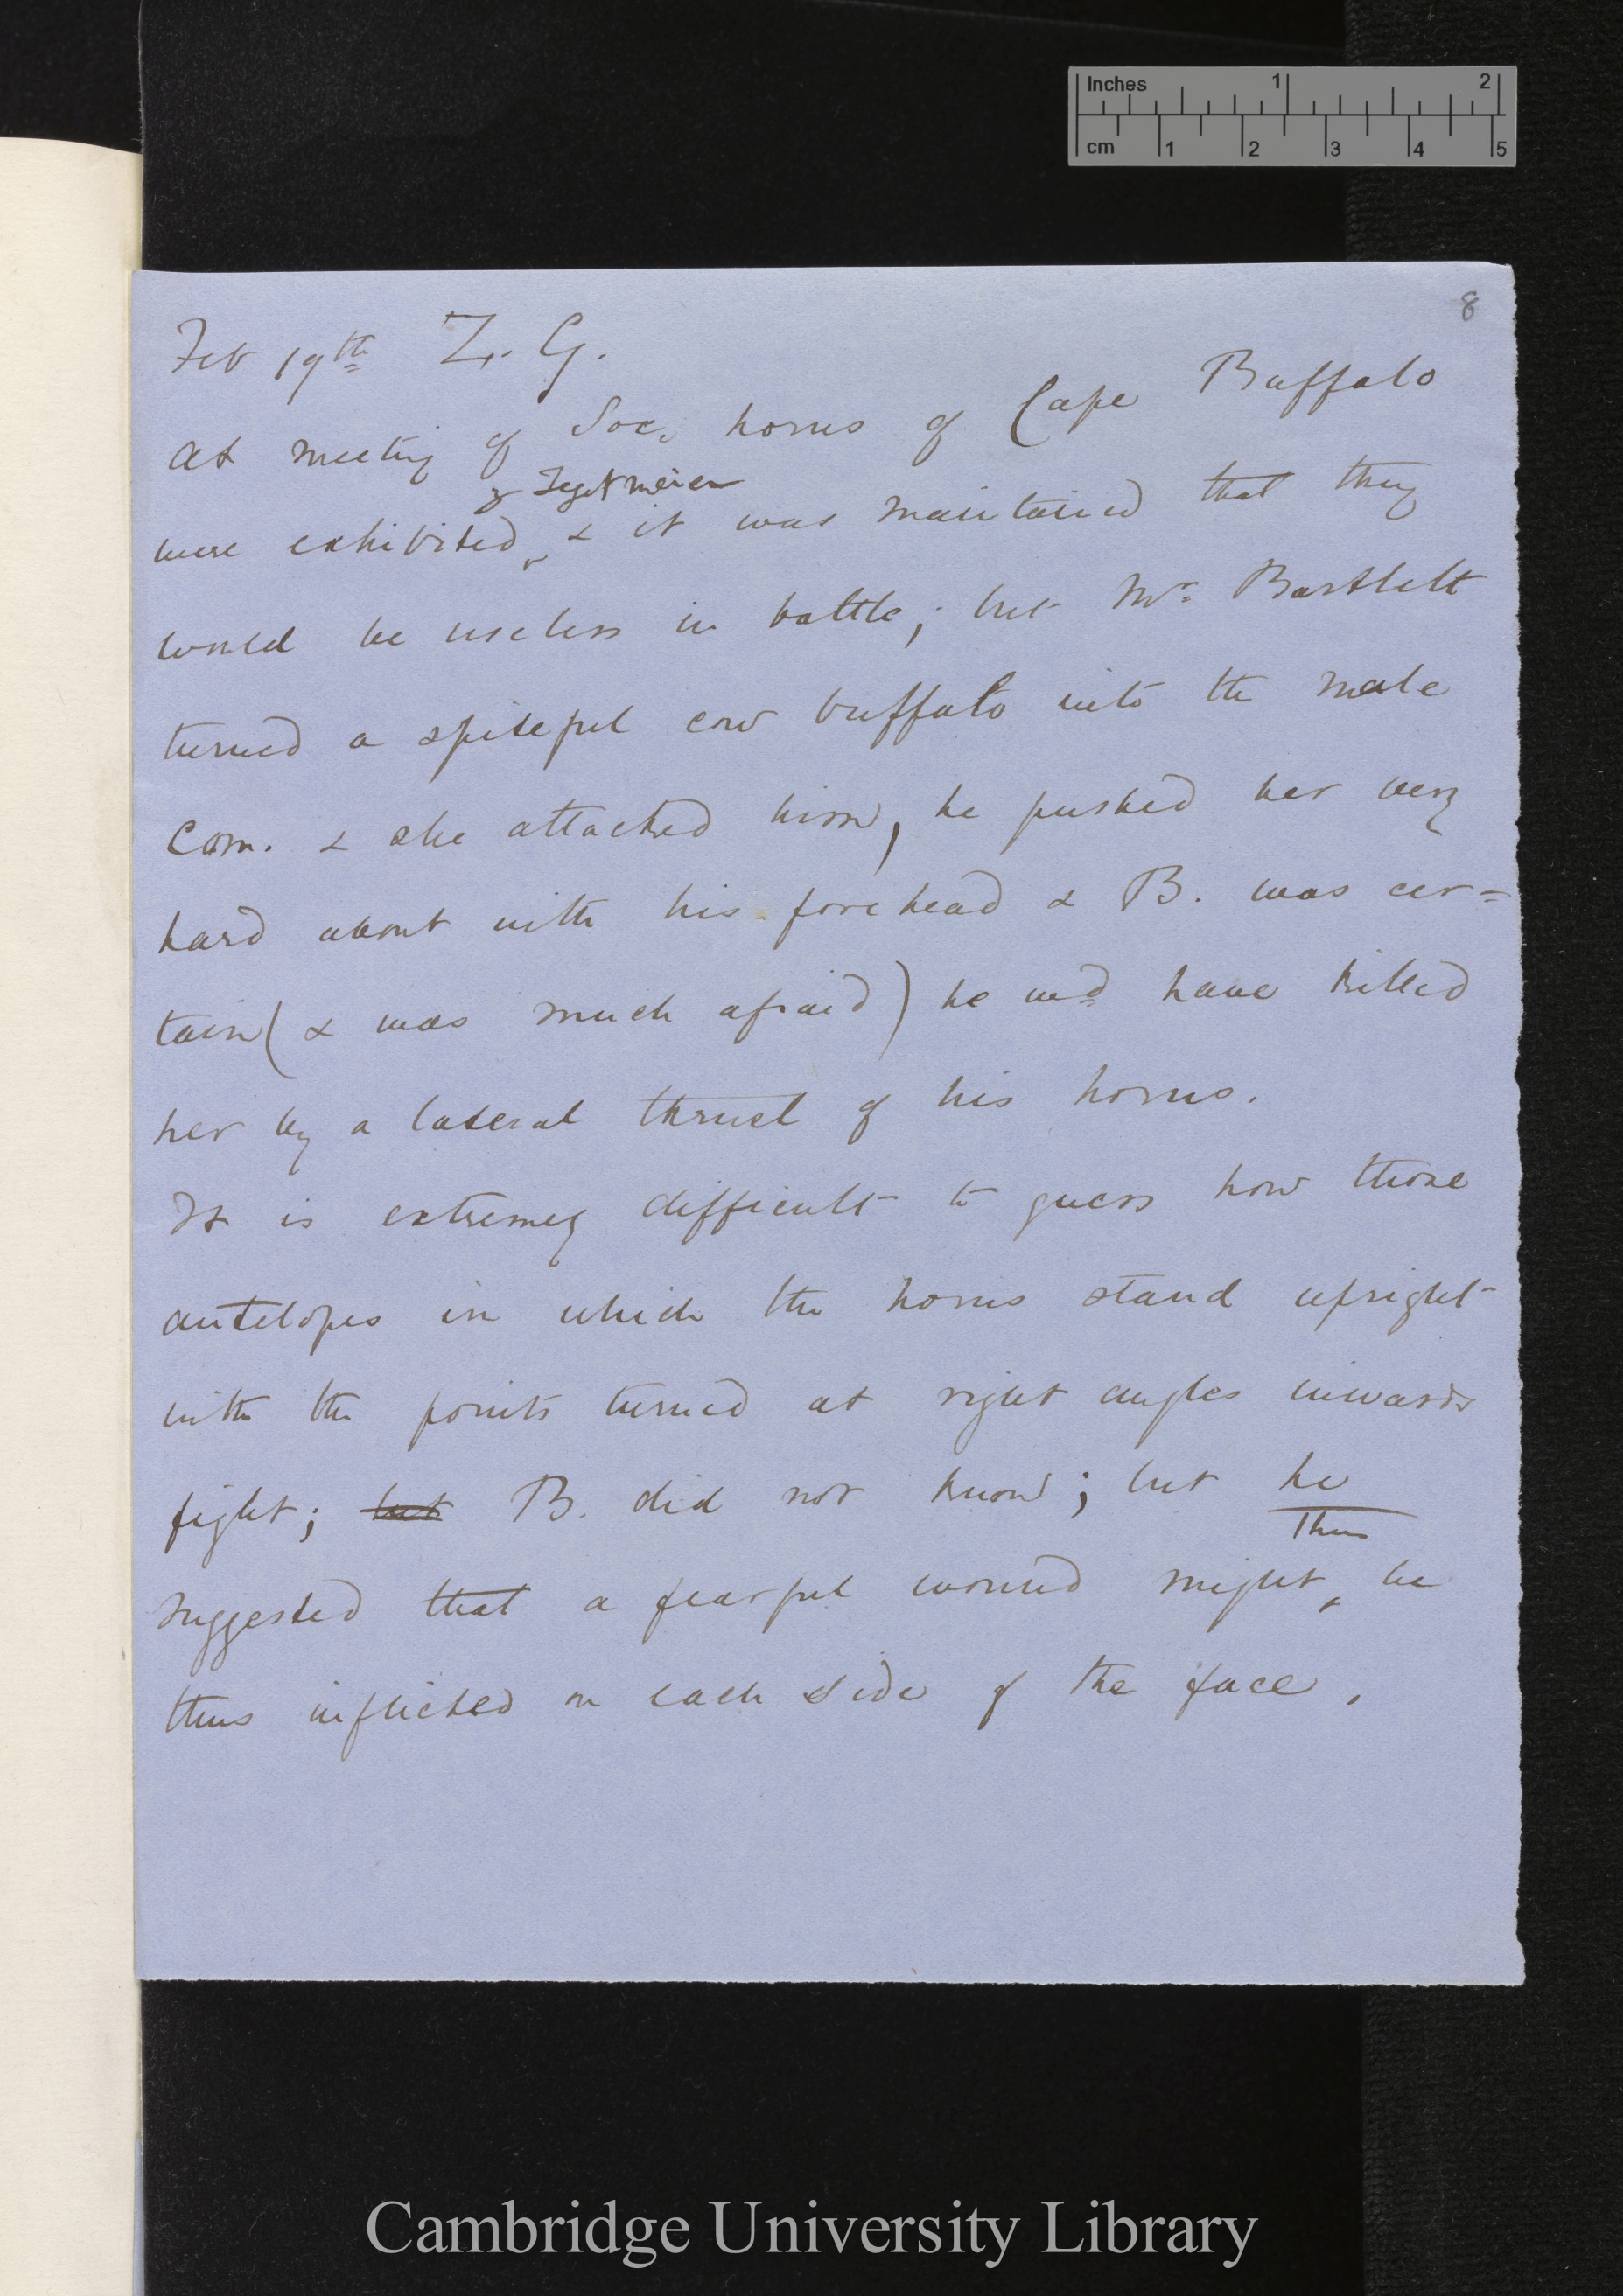 Inches 1 2
cm 1 2 3 4 5
8
Feb 19th Z. G.
At meeting of Soc. horns of Cape Buffalo
by Tegetmeier
were exhibited, & it was maintained that they
would be useless in battle; but Mr Bartlett
turned a spiteful cow buffalo into the male
Com. & she attacked him, he pushed her very
hard about with his forehead & B. was cer=
tain (& was much afraid) he wd have killed
her by a lateral thrust of his horns.
It is extremely difficult to guess how those
antelopes in which the horns stand upright
with the points turned at right angles inwards
fight; but B. did not know; but he
thus
suggested that a fearful wound might be
thus inflicted on each side of the face.
Cambridge University Library